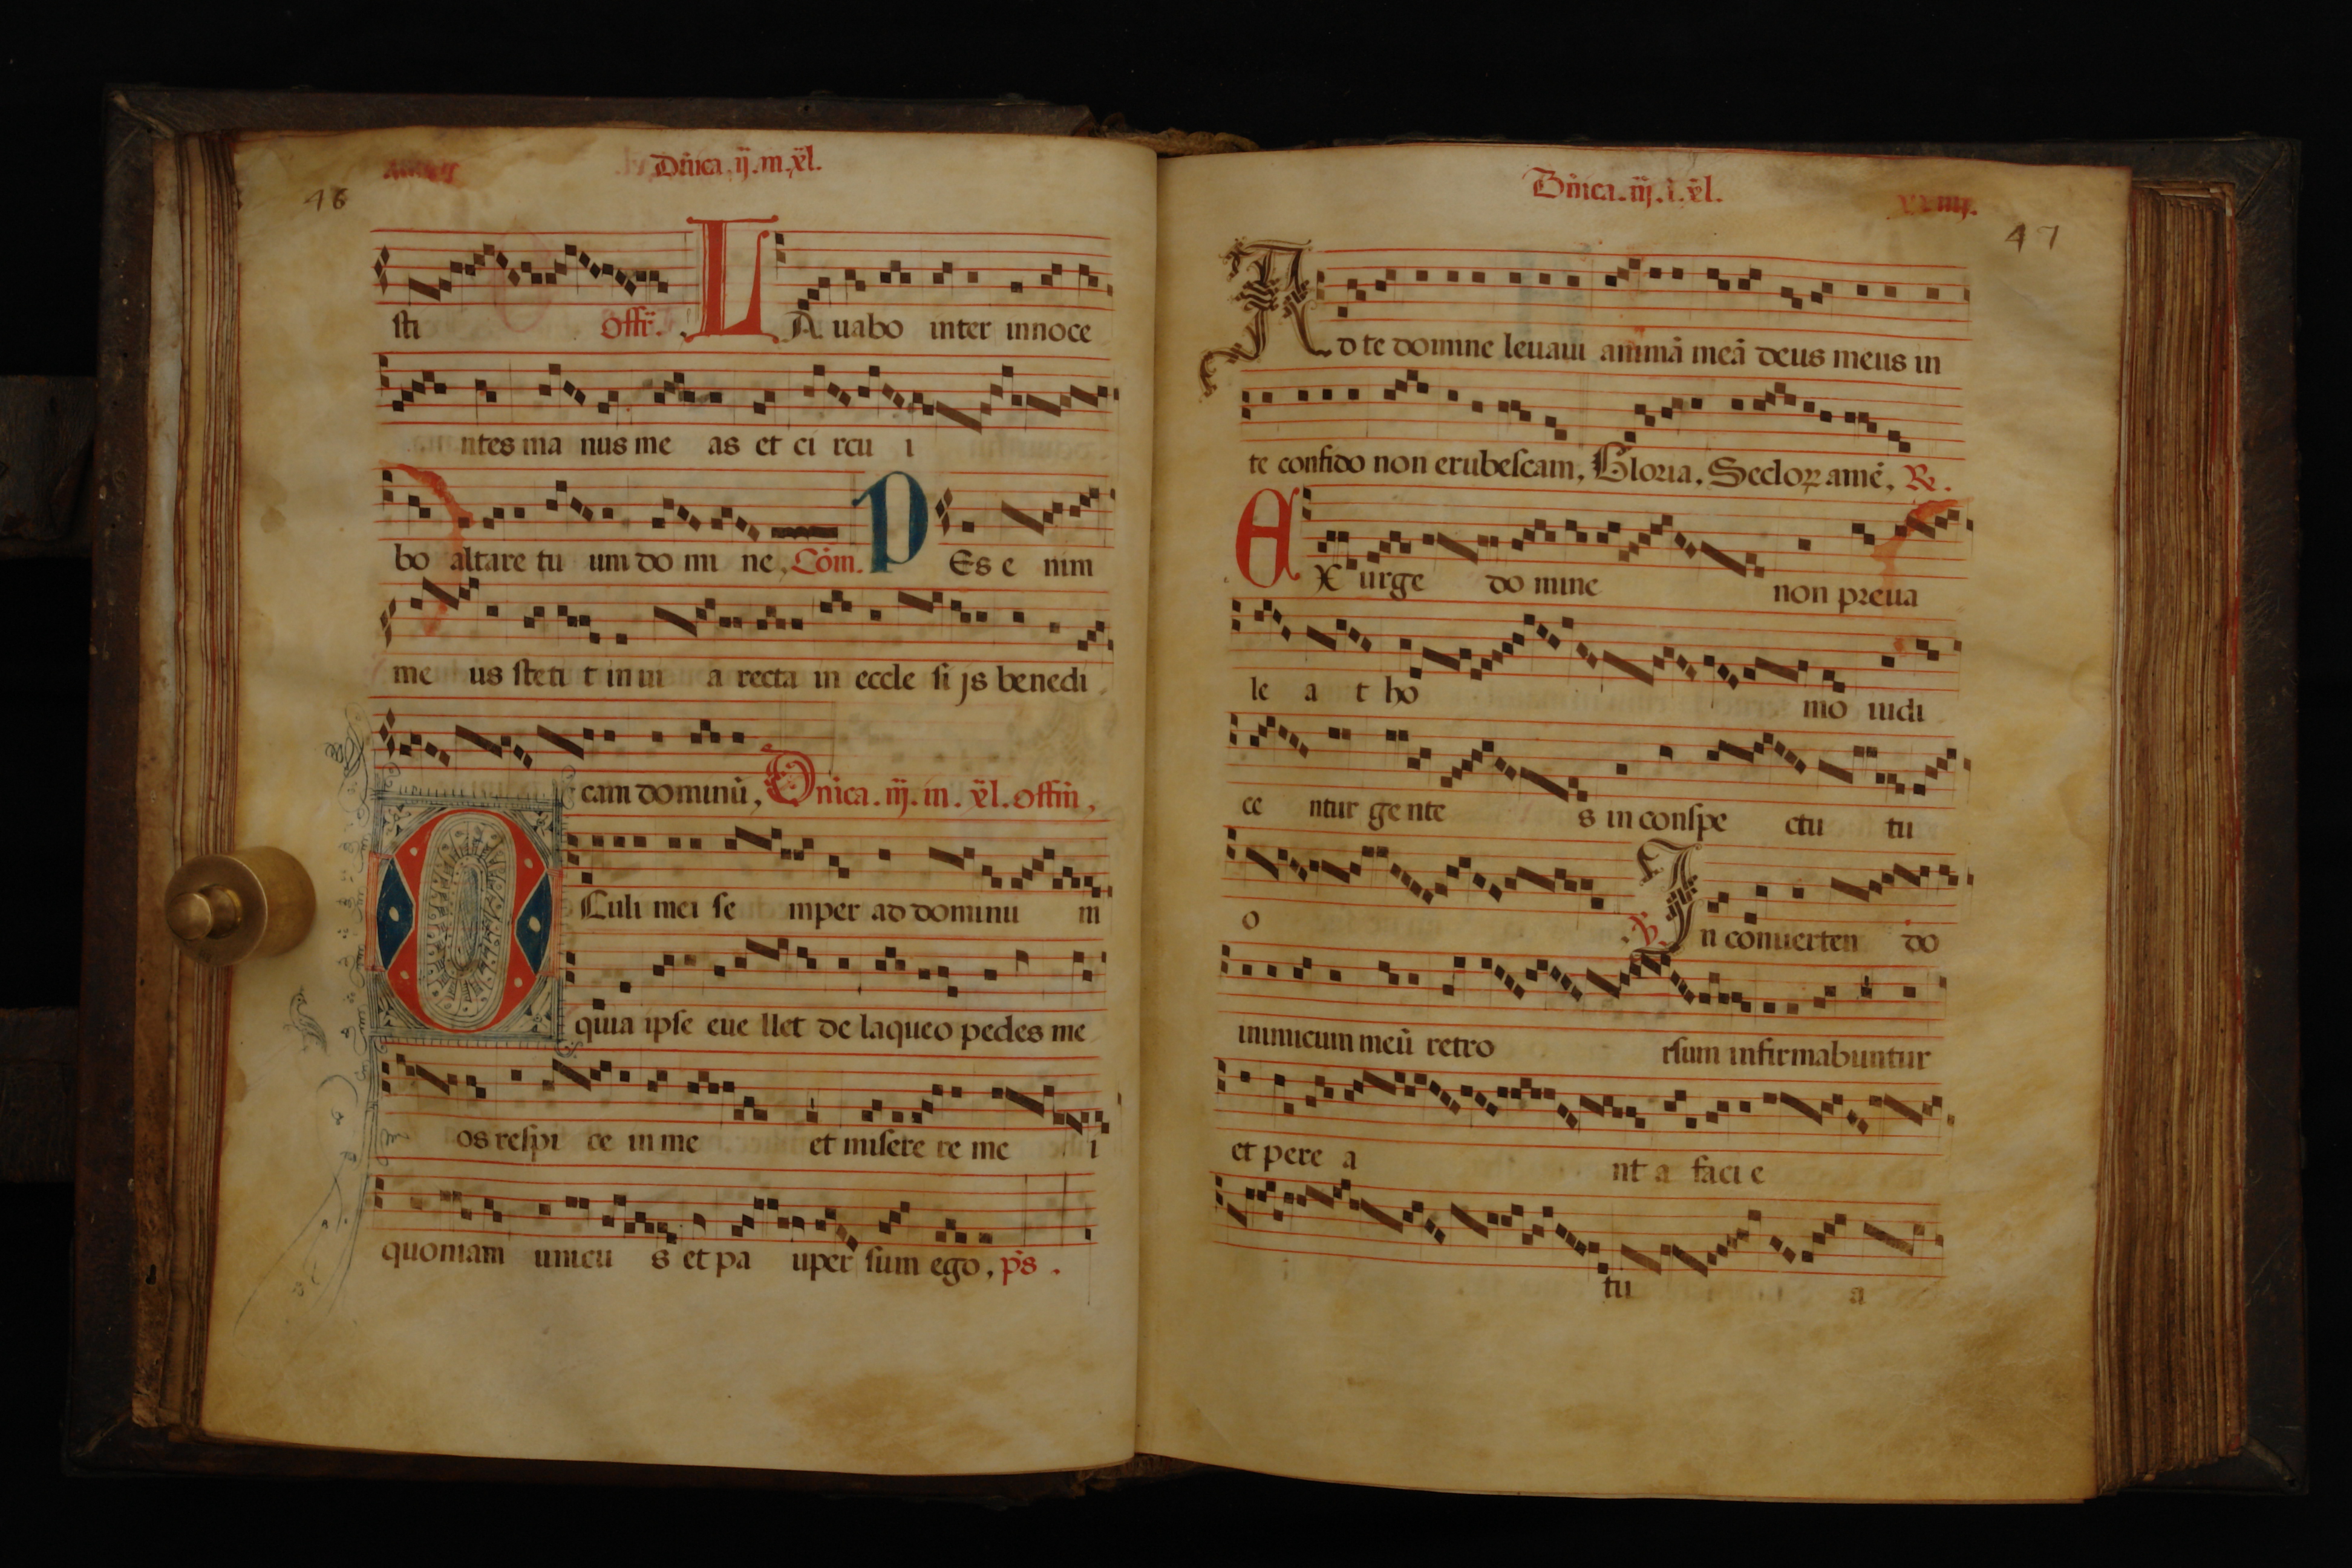 Dñica. ij. in. xl.
46
sti offr̃. LAuabo inter innoce
ntes ma nus me as et ci rcu i
bo altare tu um do mi ne, Com̃. PEs e nim
me us steti t in ui a recta in eccle si js benedi
cam dominũ, Dñica. iij. in. xl. offiñ,
OCuli mei se mper ad dominu m
quia ipse eue llet de laqueo pedes me
os respi ce in me et misere re me i
quoniam unicu s et pa uper sum ego, p̃s.
Dñica. iij. ĩ. xl.
xxiiij.
47
Ad te domine leuaui animã meã deus meus in
te confido non erubescam, Gloria, Seclorꝝ amẽ, ℞.
EXurge do mine non preua
le a t ho mo iudi
ce ntur ge nte s in conspe ctu tu
o ℣. In conuerten do
inimicum meũ retro rsum infirmabuntur
et pere a nt a faci e
tu a